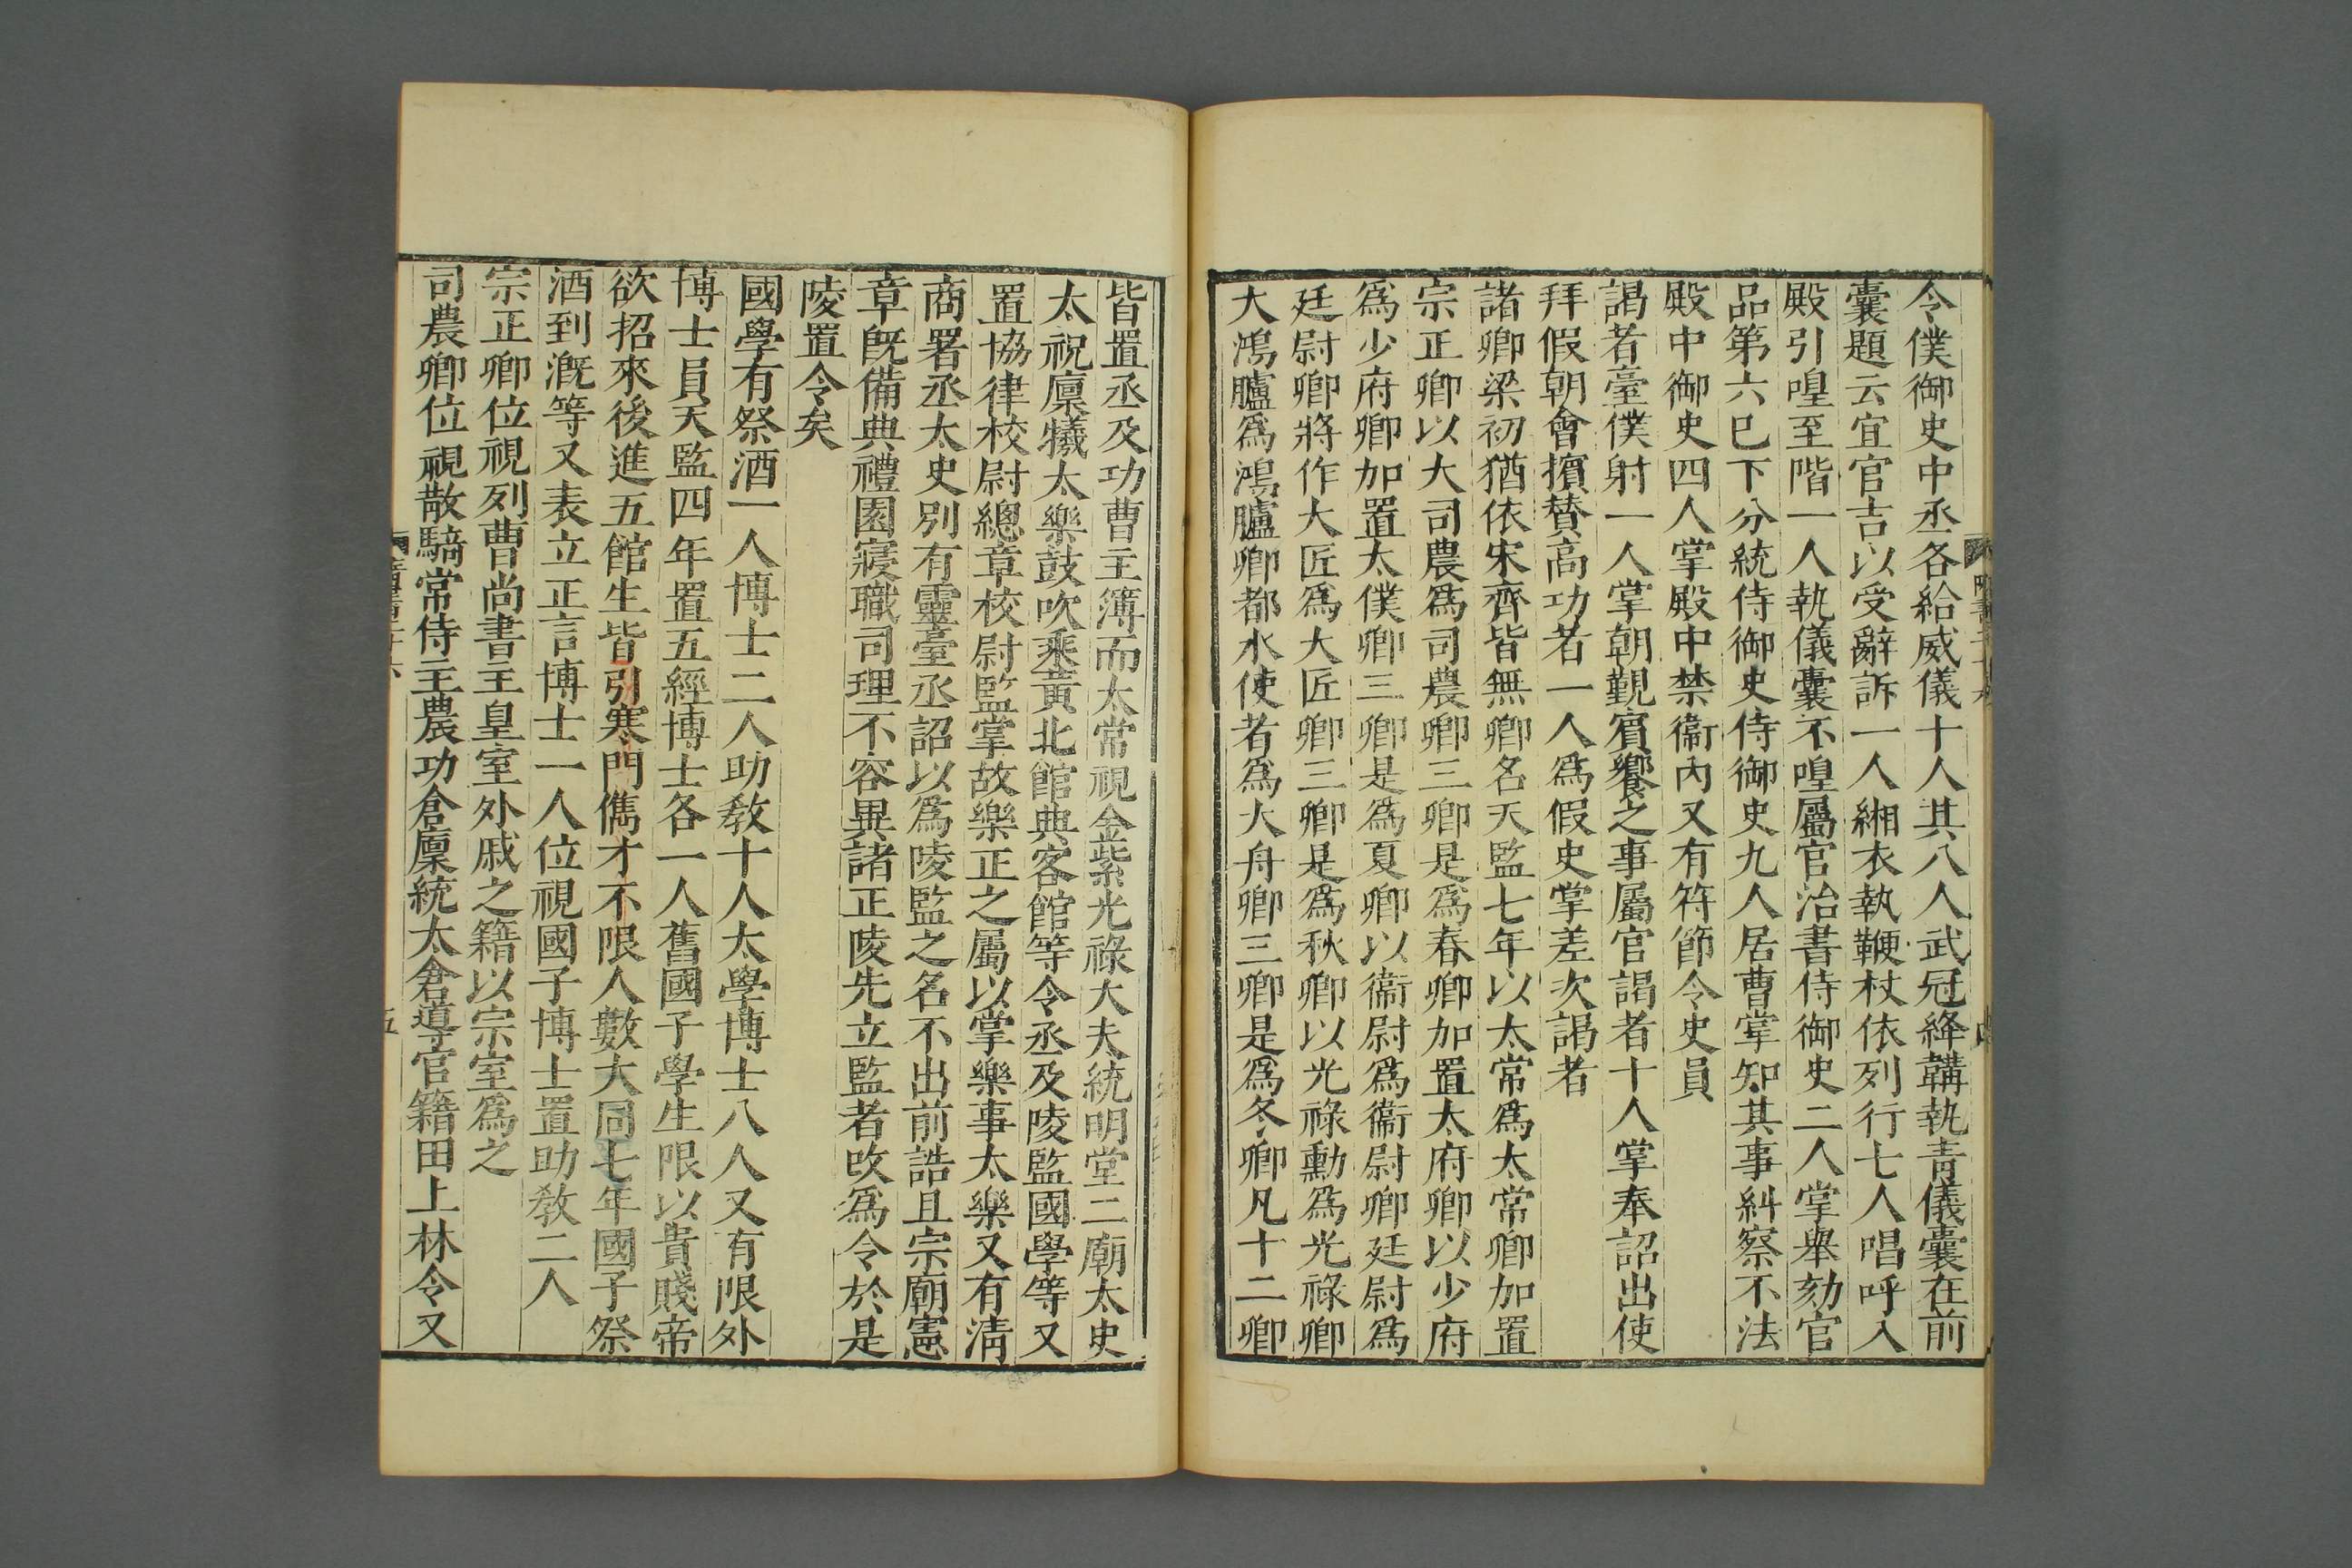 令僕御史中丞各給威儀十人其八人武冠絳韝執青儀囊在前
囊題云宜官吉以受辭訴一人緗衣執鞭杖依列行七人唱呼入
殿引喤至階一人執儀囊不喤屬官治書侍御史二人掌舉劾官
品第六已下分統侍御史侍御史九人居曹掌知其事糾察不法
殿中御史四人掌殿中禁衞內又有符節令史員
謁者臺僕射一人掌朝覲賓饗之事屬官謁者十人掌奉詔出使
拜假朝會擯贊高功者一人爲假史掌差次謁者
諸卿梁初猶依宋齊皆無卿名天監七年以太常爲太常卿加置
宗正卿以大司農爲司農卿三卿是爲春卿加置太府卿以少府
爲少府卿加置太僕卿三卿是爲夏卿以衞尉爲衞尉卿廷尉爲
廷尉卿將作大匠爲大匠卿三卿是爲秋卿以光祿勳爲光祿卿
大鴻臚爲鴻臚卿都水使者爲大舟卿三卿是爲冬卿凡十二卿
皆置丞及功曹主簿而太常視金紫光祿大夫統明堂二廟太史
太祝廩犧太樂鼓吹乘黃北館典客館等令丞及陵監國學等又
置協律校尉總章校尉監掌故樂正之屬以掌樂事太樂又有清
商署丞太史別有靈臺丞詔以爲陵監之名不出前誥且宗廟憲
章旣備典禮園寢職司理不容異諸正陵先立監者改爲令於是
陵置令矣
國學有祭酒一人博士二人助教十人太學博士八人又有限外
博士員天監四年置五經博士各一人舊國子學生限以貴賤帝
欲招來後進五館生皆引寒門儁才不限人數大同七年國子祭
酒到溉等又表立正言博士一人位視國子博士置助教二人
宗正卿位視列曹尚書主皇室外戚之籍以宗室爲之
司農卿位視散騎常侍主農功倉廩統太倉導官籍田上林令又
五